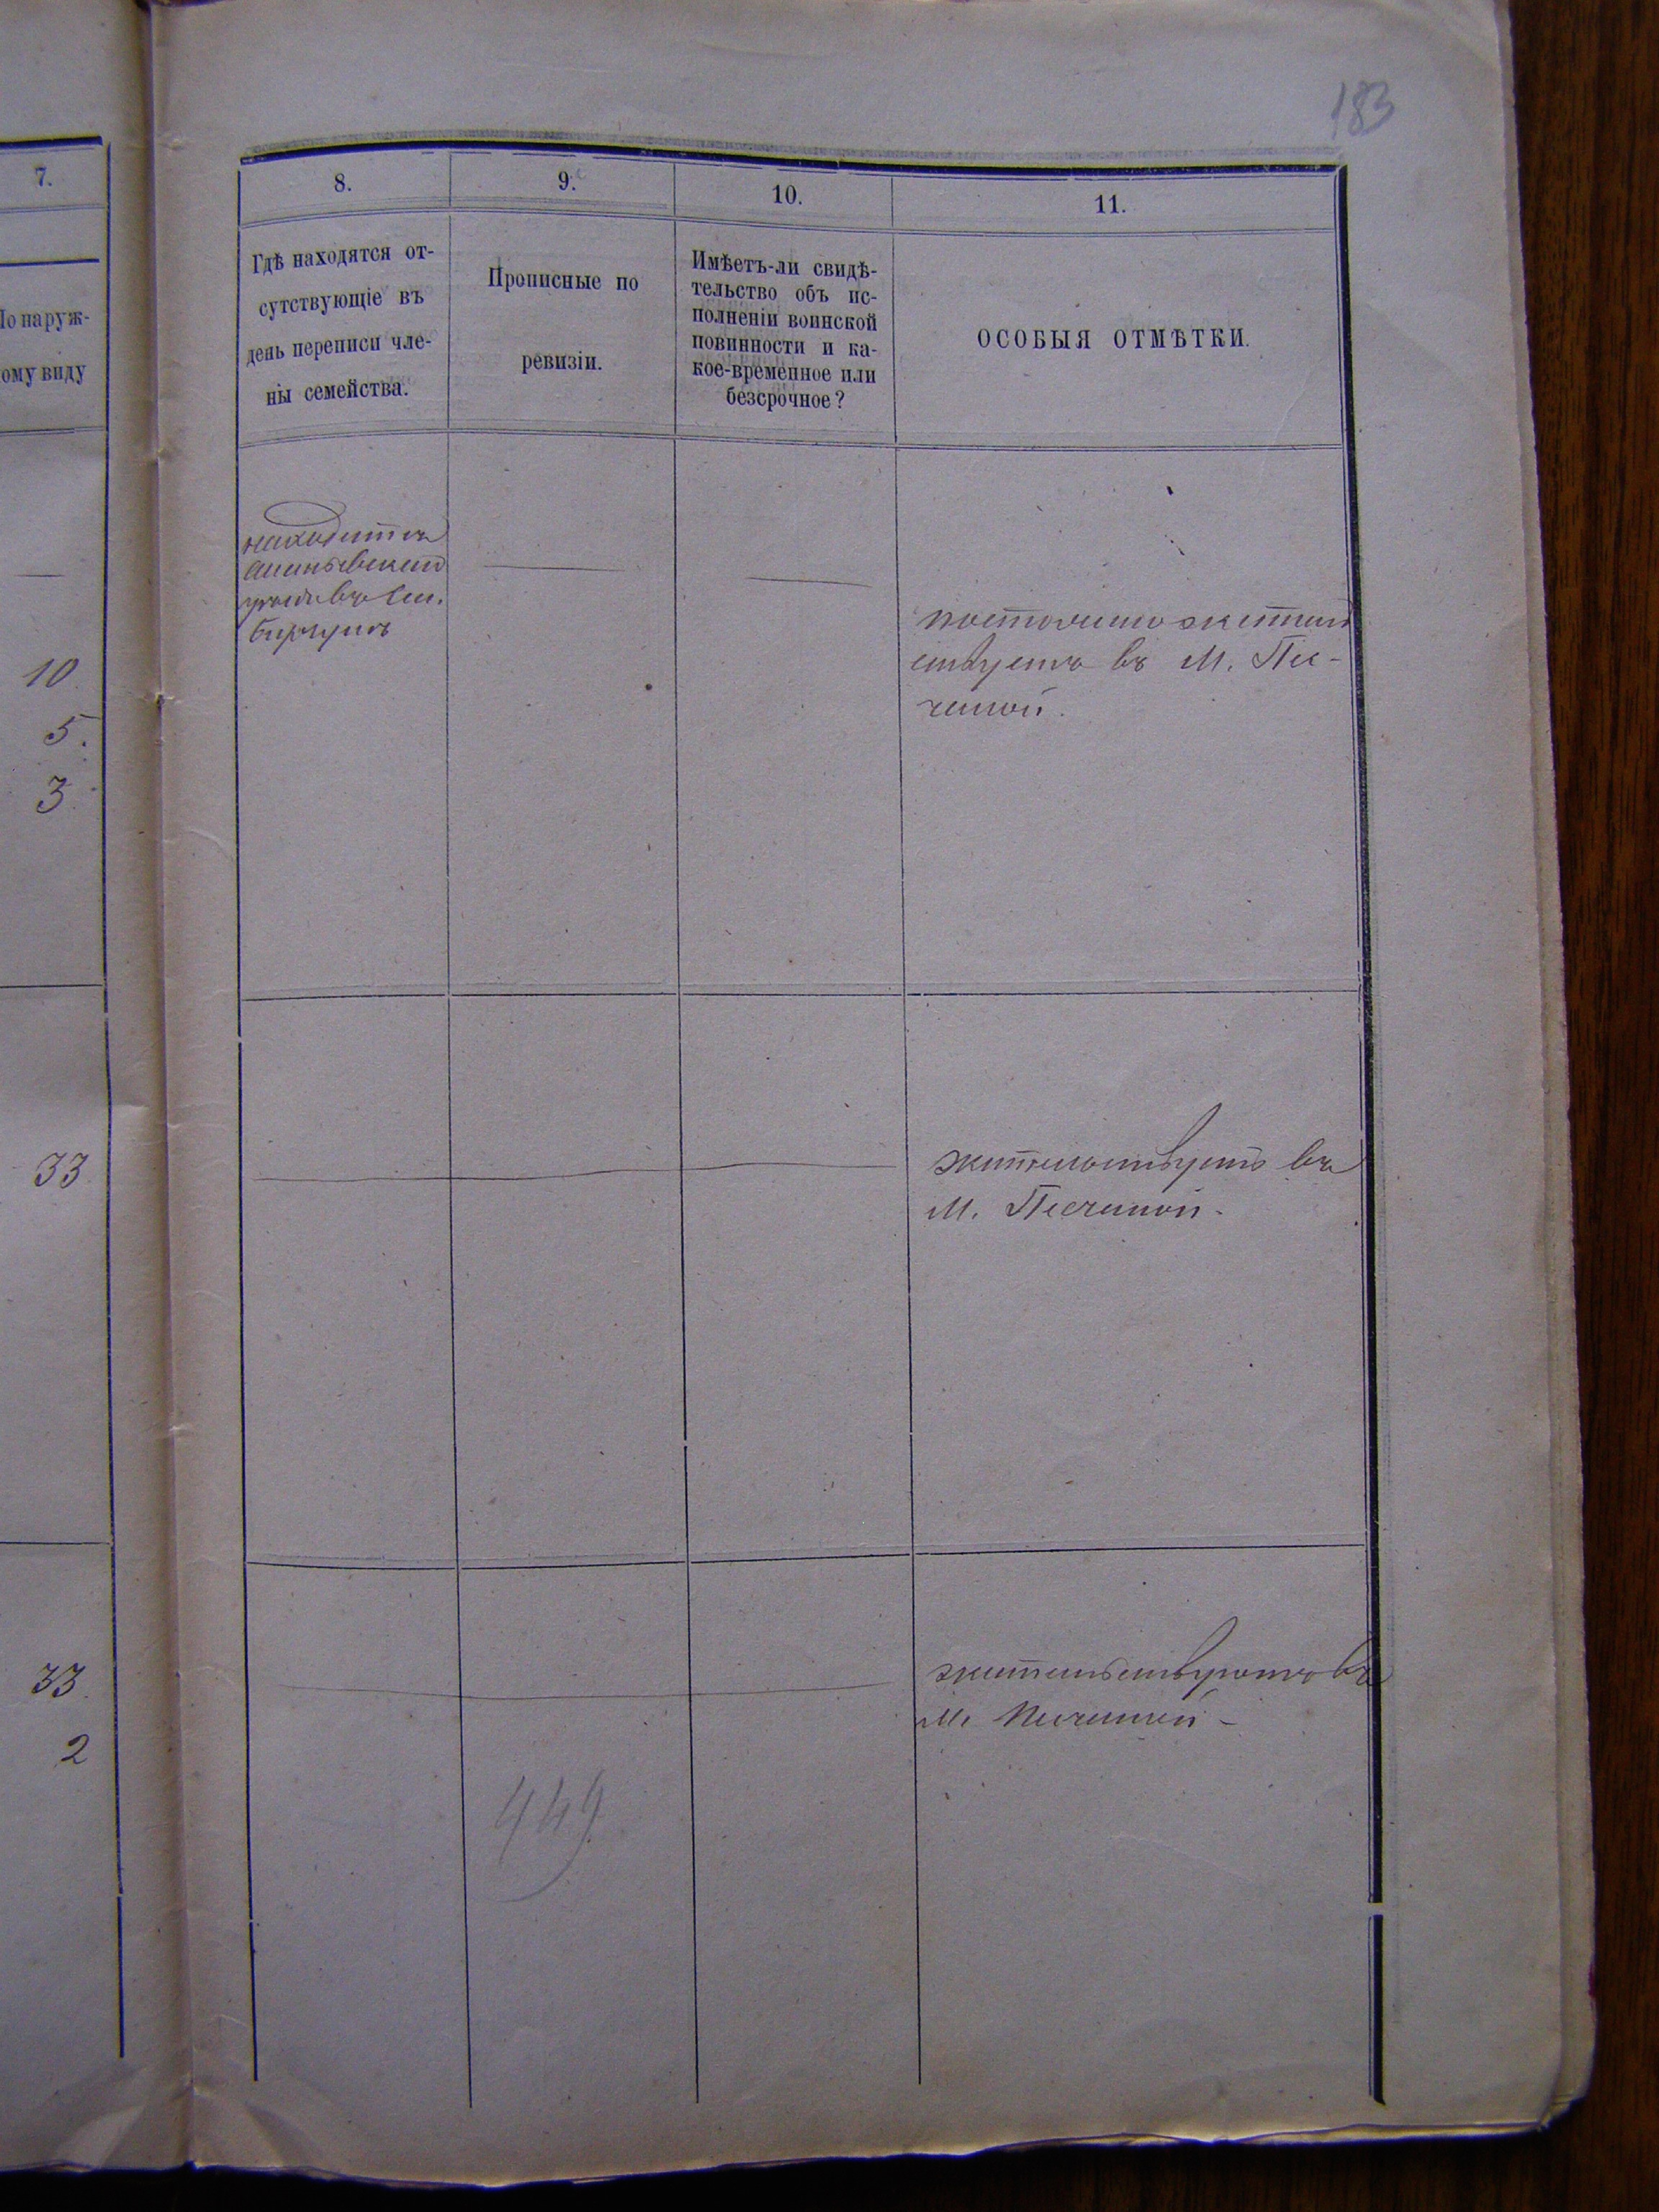 183
7.
8.
9.
10.
11.
По наруж-
ому виду
Гдѣ находятся от-
сутствующіе въ
день переписи чле-
ны семейства.
Прописные по
ревизіи.
Имѣетъ-ли свидѣ-
тельство объ ис-
полненіи воинской
повинности и ка-
кое-временное или
безсрочное?
ОСОБЫЯ ОТМѢТКИ.
находится
10
5.
3
постоянно жител
ствуетъ въ М. Пес-
чаной.
33
жительствуетъ въ
М. Песчаной -
33
2
жительствуютъ въ
М. Песчаной -
449